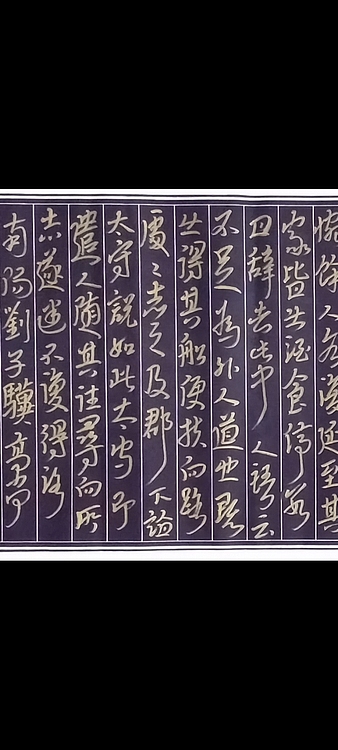 惋餘人各復延至其
家皆出酒食停數
日辭去此中人語云
不足為外人道也既
出得其船便扶向路
處々志之及郡下詣
太守說如此太守即
遣人隨其往尋向所
志遂迷不復得路
南陽劉子驥高尚